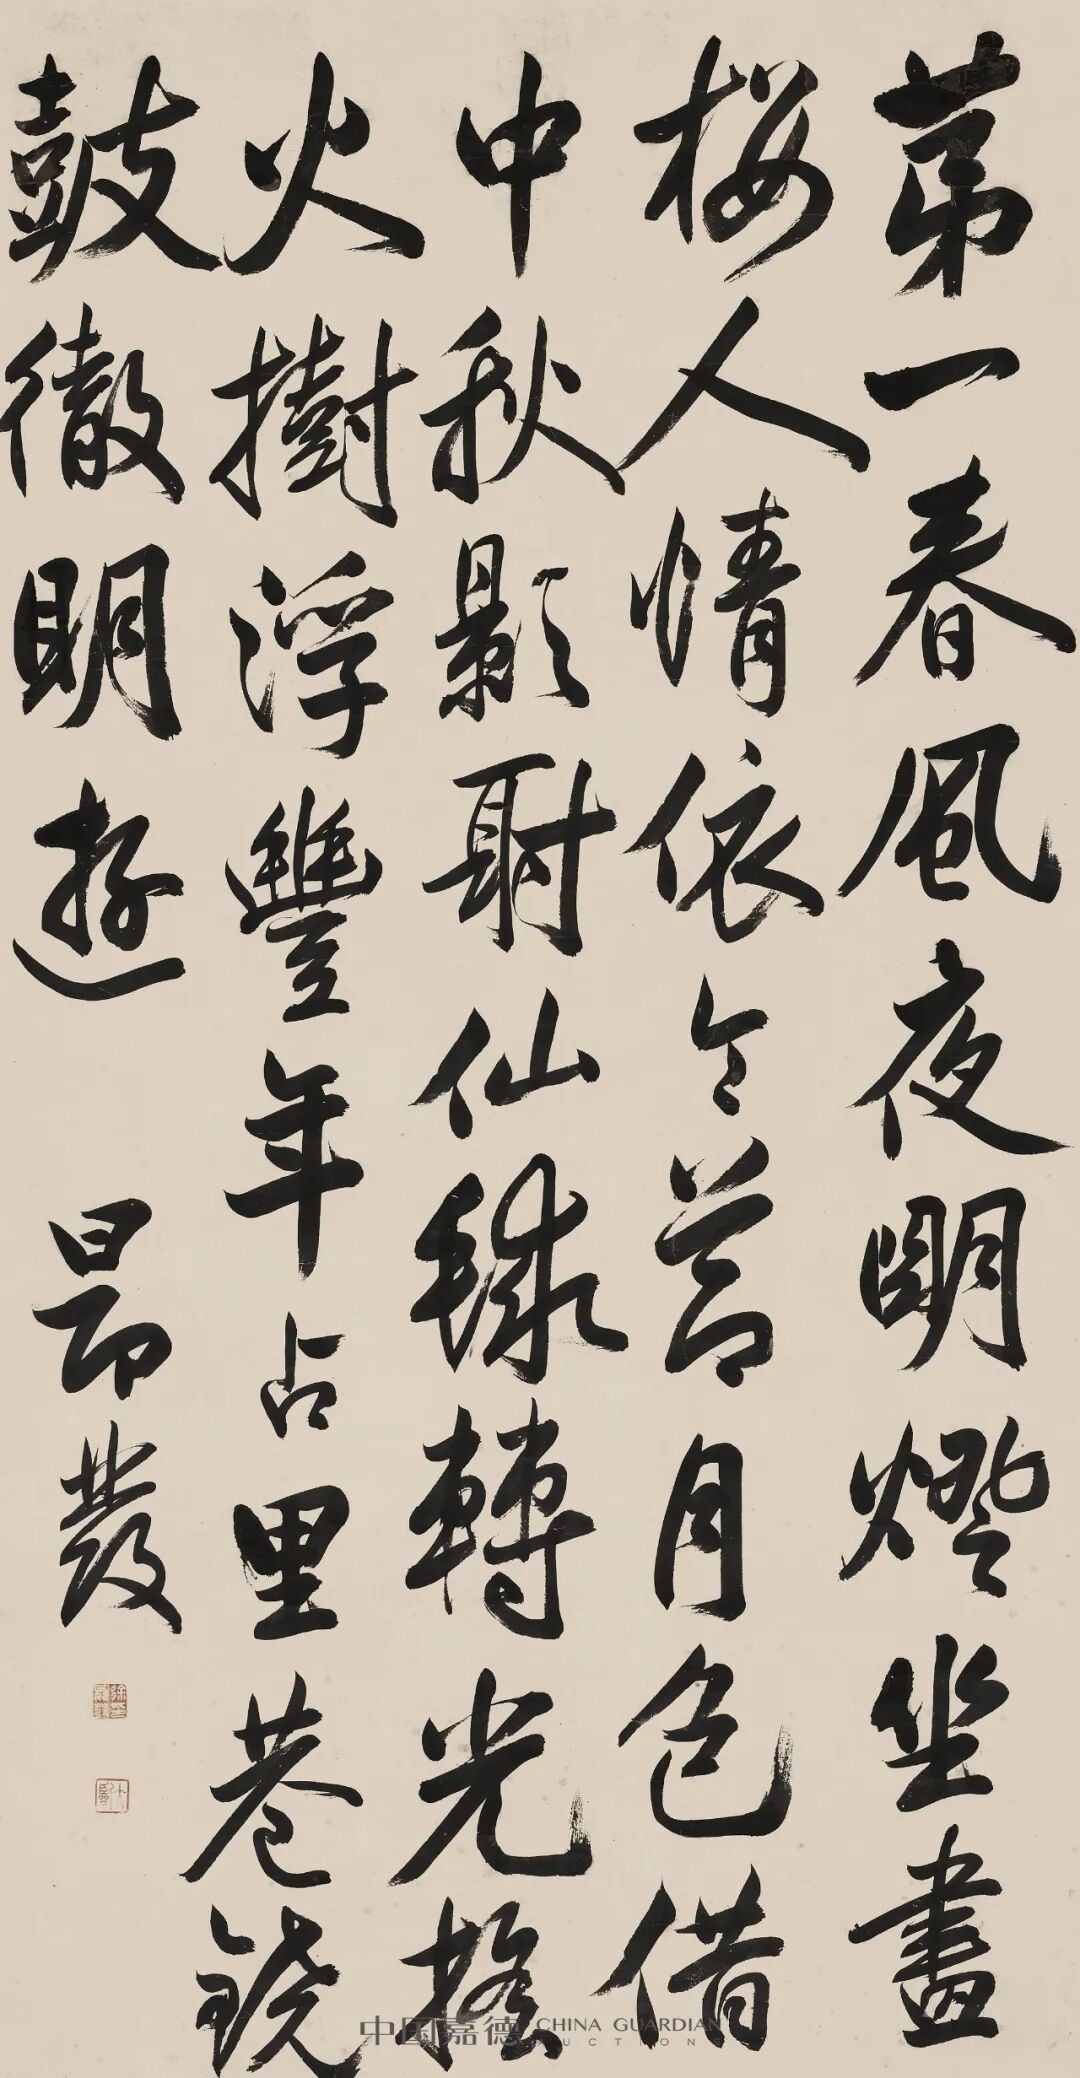 第一春風夜明燈坐畫
樓人情依令節月色借
中秋影射仙毬轉光搖
火樹浮豐年占里巷鐃
鼓徹明遊 昂發
中国嘉德 CHINA GUARDIAN
AUCTIONS